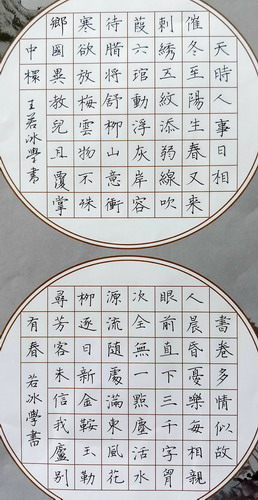 天時人事日相
催冬至陽生春又來
刺綉五紋添弱線吹
葭六琯動浮灰岸容
待腊將舒柳山意衝
寒欲放梅雲物不殊
鄉國異教兒且覆掌
中桮
王若冰學書
書卷多情似故
人晨昏憂樂每相親
眼前直下三千字胷
次全無一點塵活水
源流隨處滿東風花
柳逐日新金鞍玉勒
尋芳客未信我廬別
有春
若冰學書